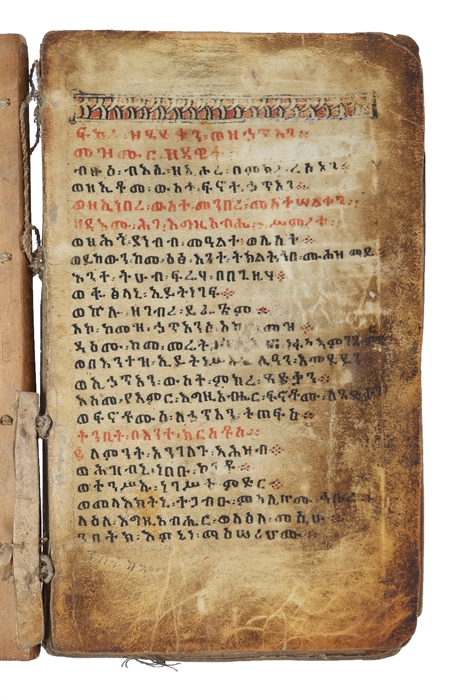 ፍካሬ፡ ዘጻድቃን፡ወዘኃጥአን።
መዝሙር ዘዳዊት፡
ብፁዕ፡ብእሲ፡ዘኢሖረ፡በምክረ፡ረሲዓን።
ወዘኢቆመ፡ውስተ፡ፍኖተ፡ኃጥአን።
ወዘኢነበረ፡ውስተ፡መንበረ፡መስተሣልቃን።
ዘዳእሙ፡ሕገ፡እግዚአብሔር፡ሥምረቱ።
ወዘሕጎ፡ያነብብ፡መዓልተ፡ወሌሊተ።
ወይከውን፡ከመ፡ዕፅ፡እንተ፡ትክልት፡ኀበ፡ሙሓዘ ማይ
እንተ፡ትሁብ፡ፍሬሃ፡በበጊዜሃ።
ወቈጽላኒ፡ኢይትነገፍ።
ወኵሎ፡ዘገብረ፡ይፌጽም።
አኮ፡ከመዝ፡ኃጥአንሰ፡አኮ፡ከመዝ።
ዳእሙ፡ከመ፡መሬት፡
ወበእንተዝ፡ኢይትነሥኡ፡ረሲዓን፡እመደይን።
ወኢኃጥአን፡ውስተ፡ምክረ፡ጻድቃን።
እስመ፡ያአምር፡እግዚአብሔር፡ፍኖቶሙ፡ለጻድቃን
ወፍኖቶሙሰ፡ለኃጥአን፡ትጠፍእ።
ትንቢት፡በእንተ፡ክርስቶስ።
፪ ለምንት፡አንገለጉ፡አሕዛብ።
ወሕዝብኒ፡ነበቡ፡ከንቶ።
ወተንሥኡ፡ነገሥተ፡ምድር።
ወመላእክትኒ፡ተጋብኡ፡ምስሌሆሙ፡ኅቡረ።
ላዕለ፡እግዚአብሔር፡ወላዕለ፡መሲሑ።
ንበትክ፡እምኔነ፡መዓሥሪሆሙ።